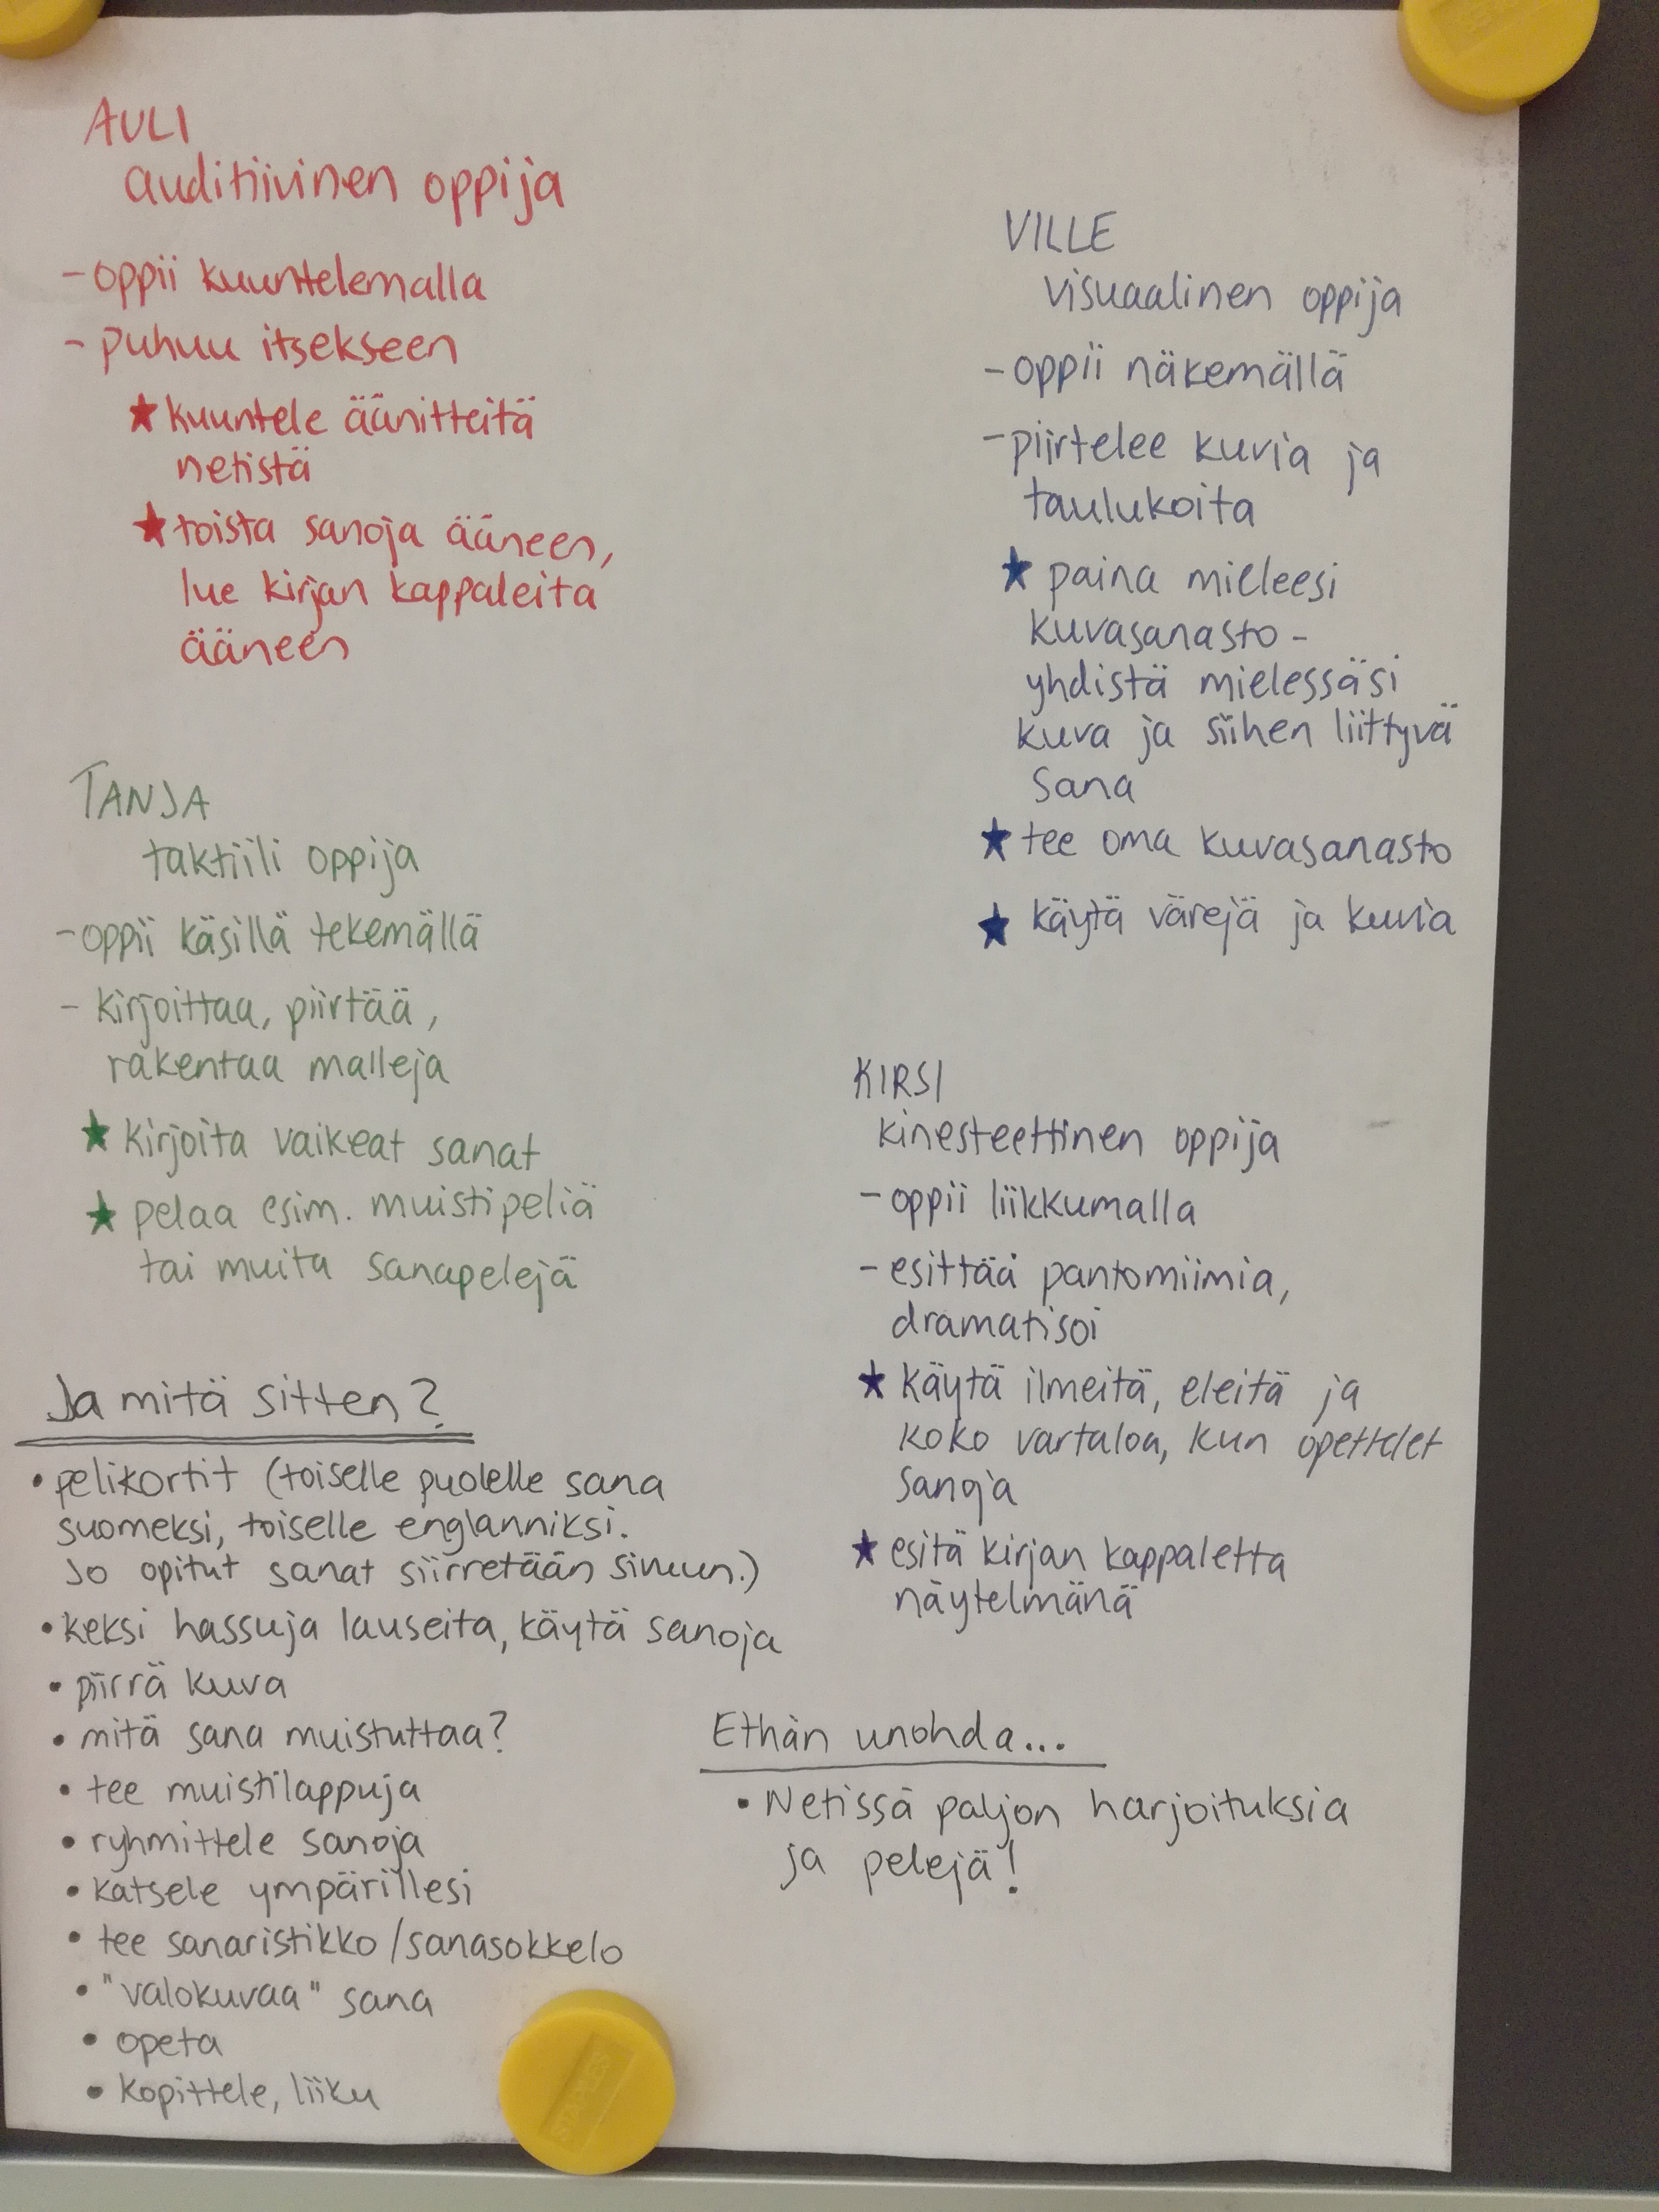 AULI
auditiivinen oppija
- oppii kuuntelemalla
- puhuu itsekseen
★ kuuntele äänitteitä
netistä
★ toista sanoja ääneen,
lue kirjan kappaleita
ääneen
VILLE
visuaalinen oppija
- oppii näkemällä
- piirtelee kuvia ja
taulukoita
★ paina mieleesi
kuvasanasto -
yhdistä mielessäsi
kuva ja siihen liittyvä
sana
★ tee oma kuvasanasto
★ käytä värejä ja kuvia
TANJA
taktiili oppija
- oppii käsillä tekemällä
- kirjoittaa, piirtää,
rakentaa malleja
★ kirjoita vaikeat sanat
★ pelaa esim. muistipeliä
tai muita sanapelejä
KIRSI
kinesteettinen oppija
- oppii liikkumalla
- esittää pantomiimia,
dramatisoi
★ käytä ilmeitä, eleitä ja
koko vartaloa, kun opettelet
sanoja
★ esitä kirjan kappaletta
näytelmänä
Ja mitä sitten?
• pelikortit (toiselle puolelle sana
suomeksi, toiselle englanniksi.
Jo opitut sanat siirretään sivuun.)
• keksi hassuja lauseita, käytä sanoja
• piirrä kuva
• mitä sana muistuttaa?
• tee muistilappuja
• ryhmittele sanoja
• katsele ympärillesi
• tee sanaristikko/sanasokkelo
• "valokuvaa" sana
• opeta
• kopittele, liiku
Ethän unohda...
• Netissä paljon harjoituksia
ja pelejä!
STAPLES